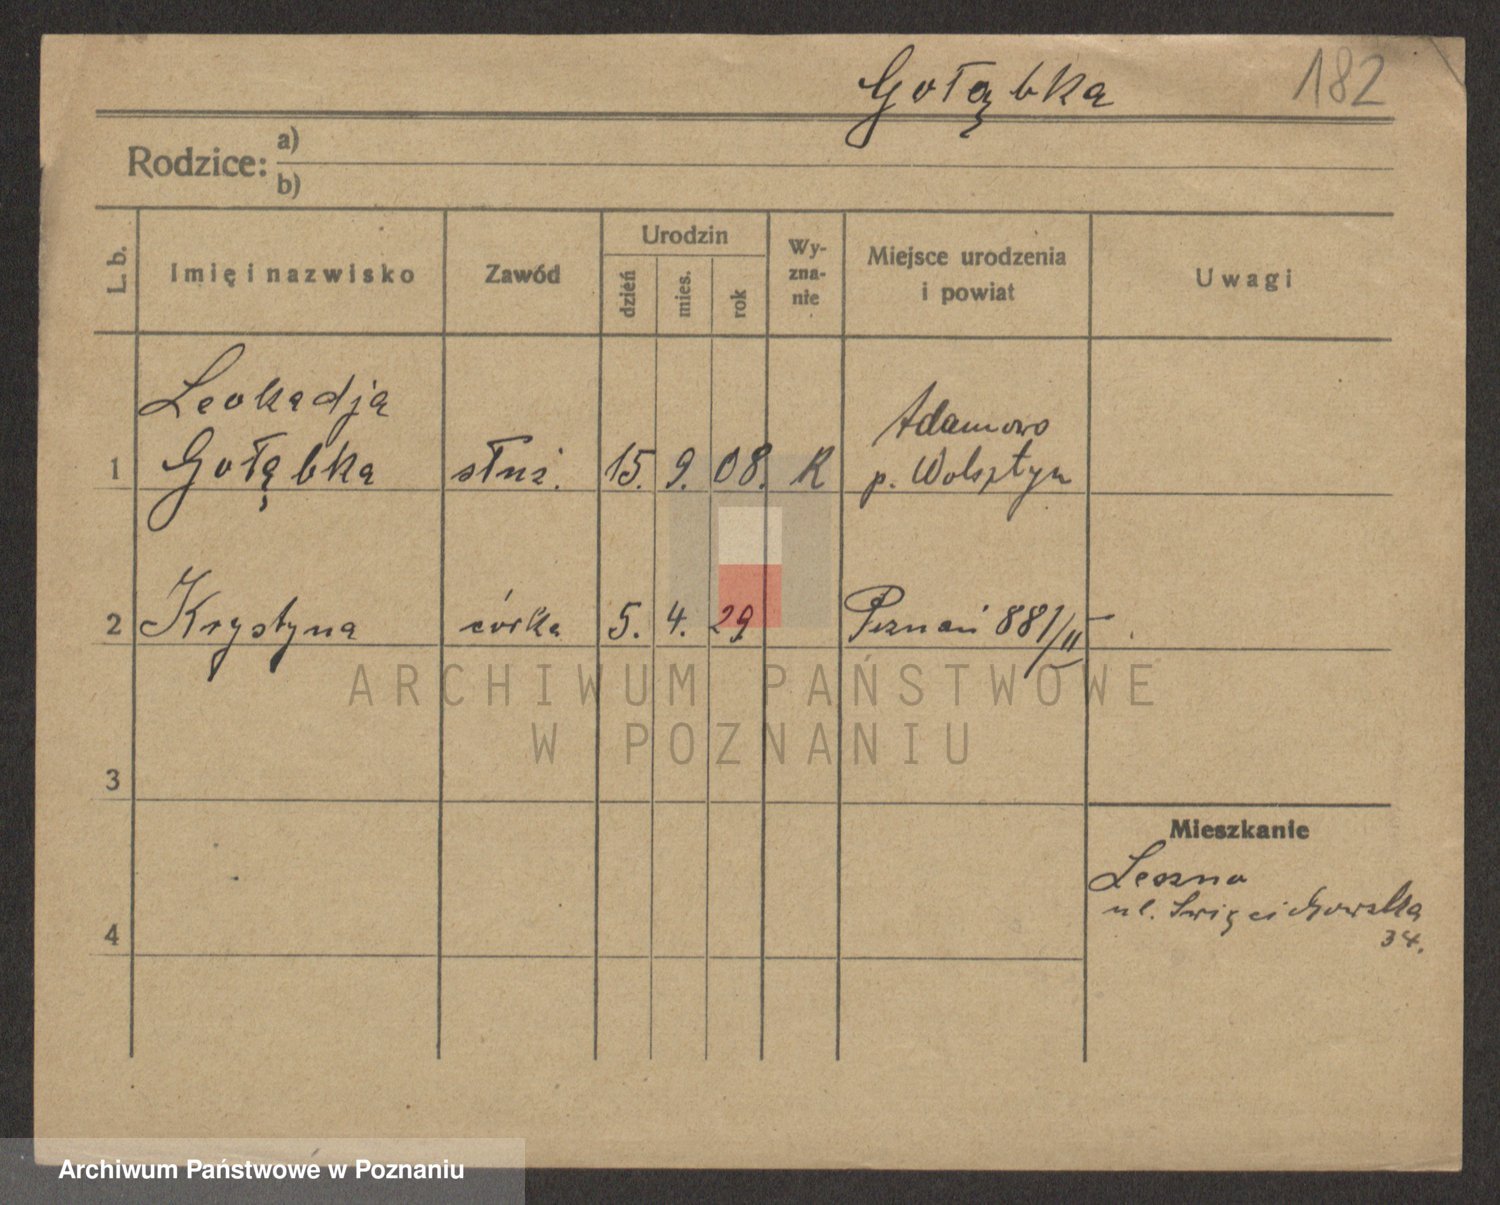 Gołąbka
182
Rodzice: a)
b)
L. b.
Imię i nazwisko
Zawód
Urodzin
dzień
mies.
rok
Wy-
zna-
nie
Miejsce urodzenia
i powiat
Uwagi
Leokadja
Adamowo
1 Gołąbka służ. 15. 9. 08. R p. Wolsztyn
2 Krystyna córka 5. 4. 29 Poznań 881/II
ARCHIWUM PAŃSTWOWE
W POZNANIU
3
Mieszkanie
Leszno
ul. Święciechowska
4
34.
Archiwum Państwowe w Poznaniu